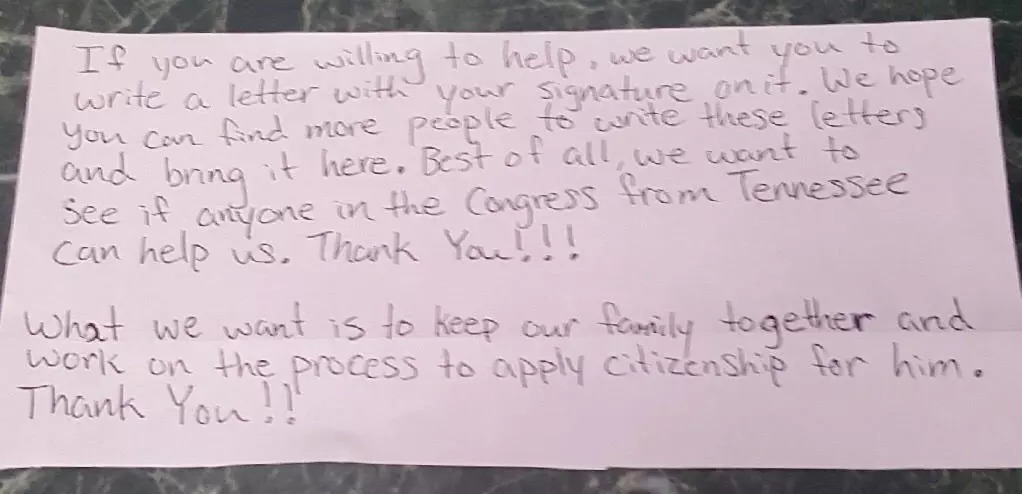 If you are willing to help, we want you to
write a letter with your signature on it. We hope
you can find more people to write these letters
and bring it here. Best of all, we want to
see if anyone in the Congress from Tennessee
can help us. Thank You!!!
What we want is to keep our family together and
work on the process to apply citizenship for him.
Thank You!!